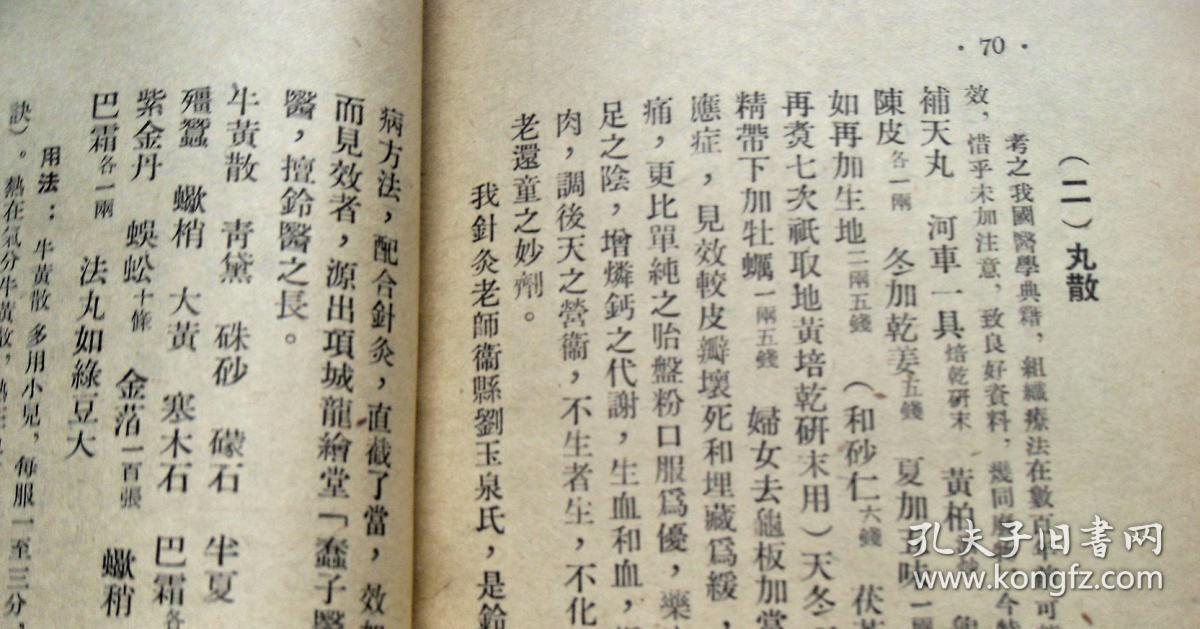 · 70 ·
（二）丸散
考之我國醫學典籍，組織療法在數百年
效，惜乎未加注意，致良好資料，幾同
補天丸　河車一具焙乾研末　黃柏
陳皮各一兩　冬加乾姜五錢　夏加五味
如再加生地二兩五錢　（和砂仁六錢　茯苓
再煑七次祇取地黃培乾研末用）天冬
精帶下加牡蠣一兩五錢　婦女去龜板加當
應症，見效較皮瓣壞死和埋藏爲緩，
痛，更比單純之胎盤粉口服爲優，藥
足之陰，增燐鈣之代謝，生血和血，
肉，調後天之營衞，不生者生，不化
老還童之妙劑。
我針灸老師衞縣劉玉泉氏，是鈴
病方法，配合針灸，直截了當，效如
而見效者，源出項城龍繪堂「蠢子醫
醫，擅鈴醫之長。
牛黃散　靑黛　硃砂　礞石　半夏
殭蠶　蠍梢　大黃　寒木石　巴霜各
紫金丹　蜈蚣十條　金萡一百張　蠍稍
巴霜各一兩　法丸如綠豆大
用法：牛黃散多用小兒，每服一至三分，
訣）。熱在氣分牛黃散，熱在
孔夫子旧書网
www.kongfz.com